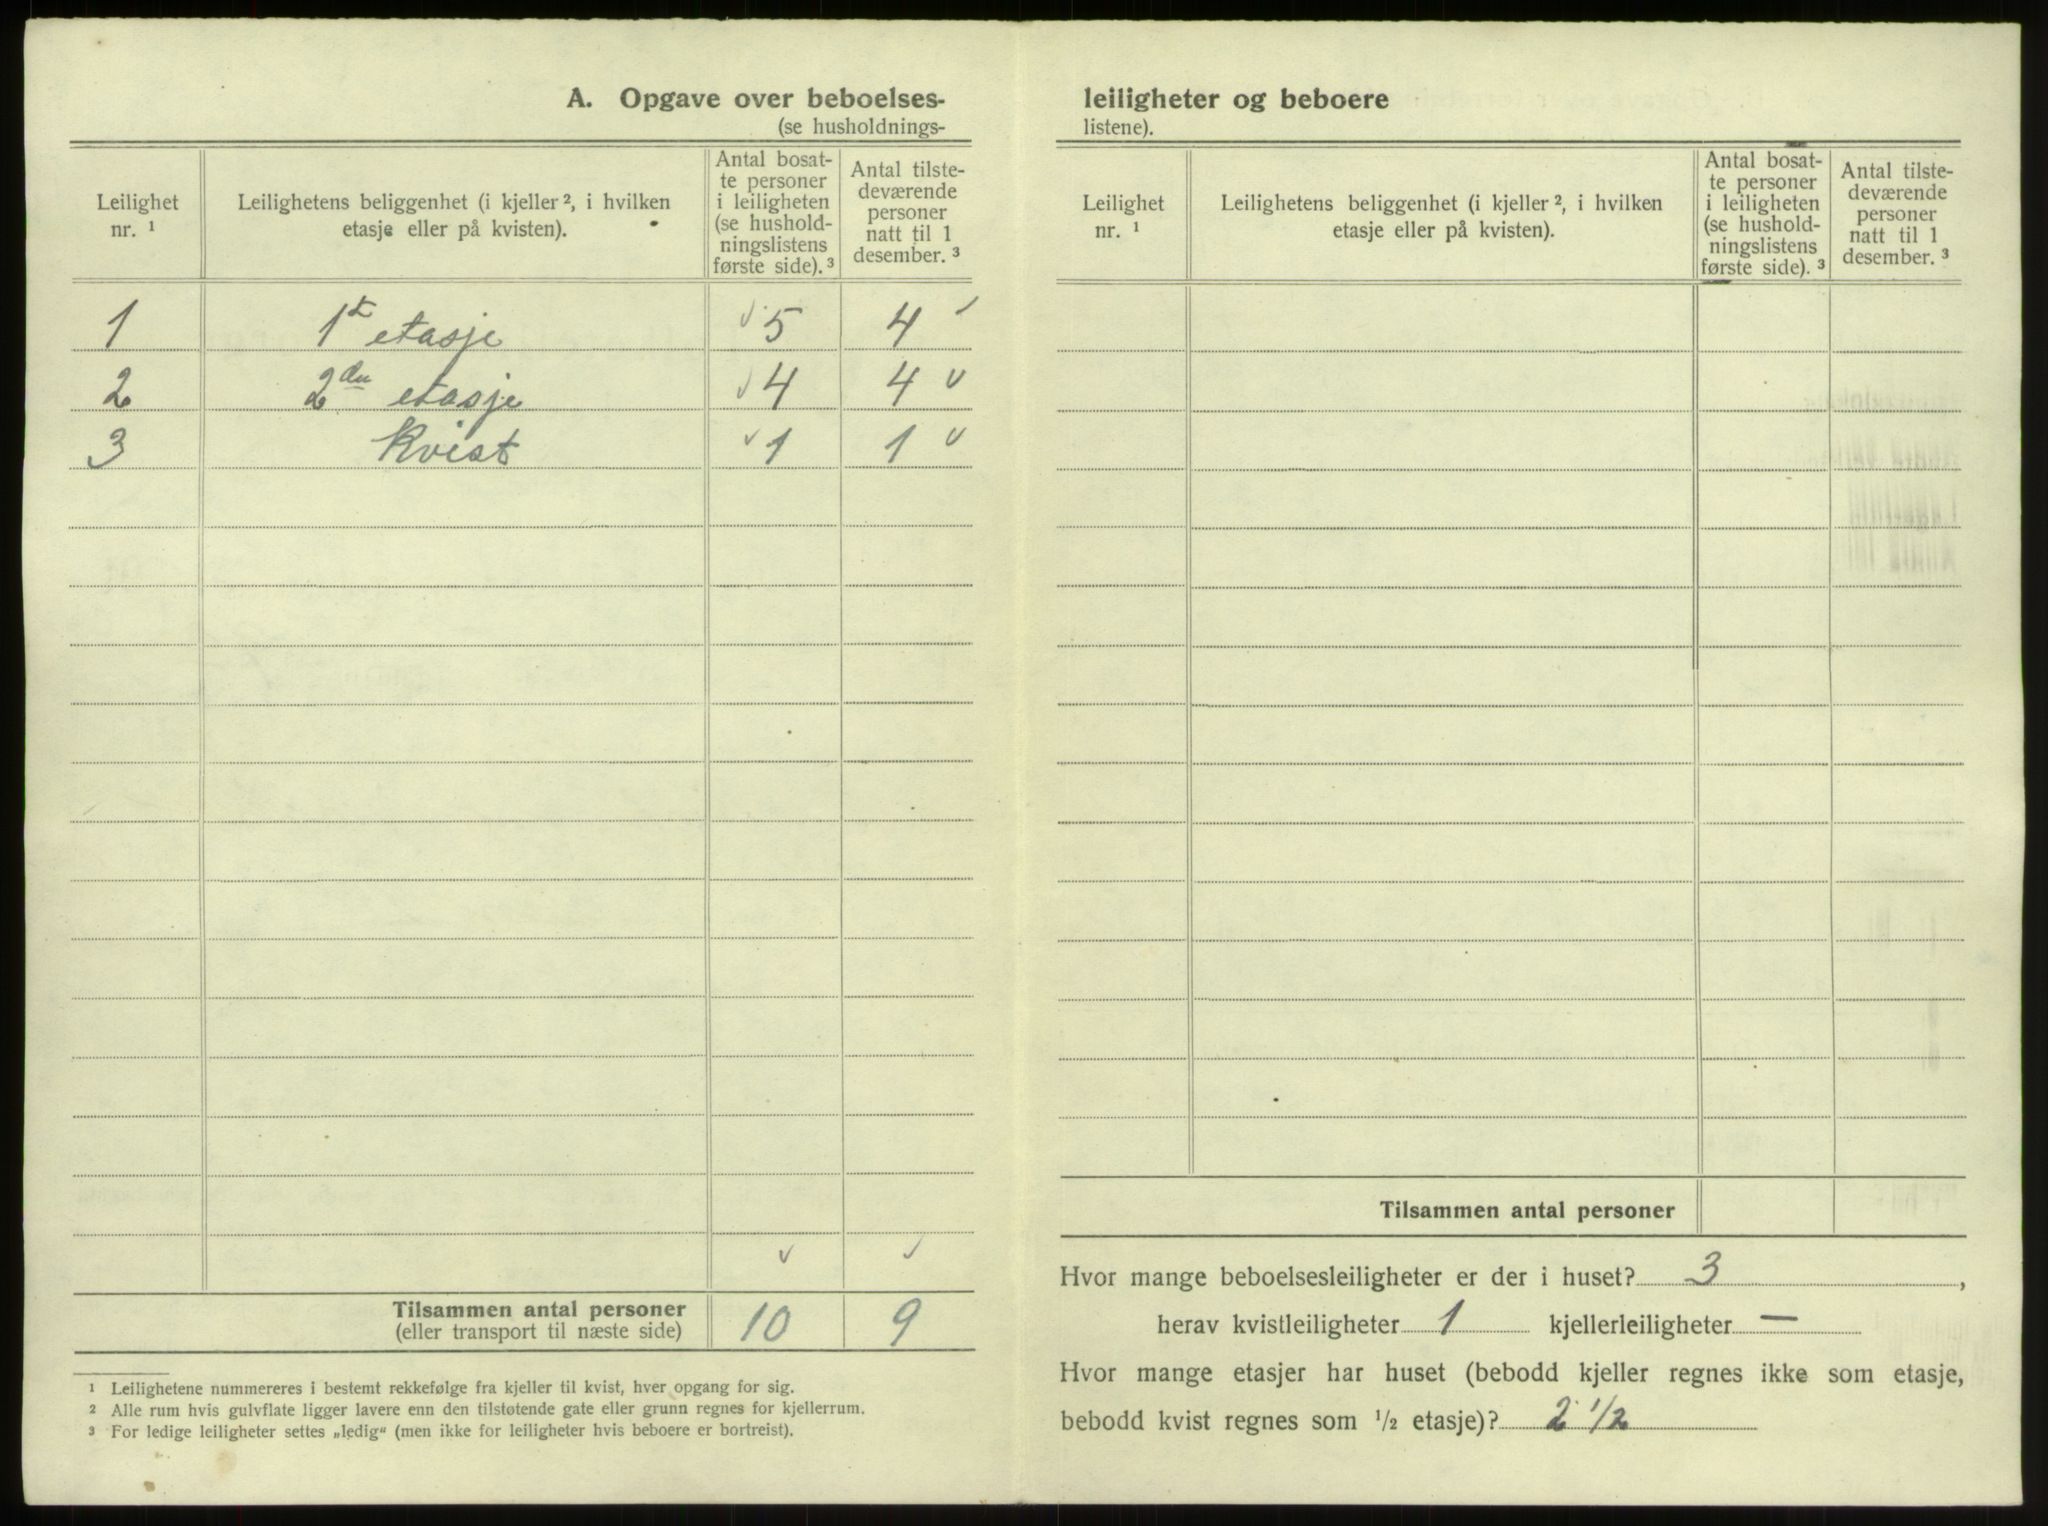 A. Opgave over beboelses-
(se husholdnings-
Leilighet
nr. ¹
Leilighetens beliggenhet (i kjeller ², i hvilken
etasje eller på kvisten).
Antal bosat-
te personer
i leiligheten
(se hushold-
ningslistens
første side). ³
Antal tilste-
deværende
personer
natt til 1
desember. ³
1 1ste etasje 5 4
2 2den etasje 4 4
3 Kvist 1 1
Tilsammen antal personer 10 9
(eller transport til næste side)
¹ Leilighetene nummereres i bestemt rekkefølge fra kjeller til kvist, hver opgang for sig.
² Alle rum hvis gulvflate ligger lavere enn den tilstøtende gate eller grunn regnes for kjellerrum.
³ For ledige leiligheter settes „ledig“ (men ikke for leiligheter hvis beboere er bortreist).
leiligheter og beboere
listene).
Leilighet
nr. ¹
Leilighetens beliggenhet (i kjeller ², i hvilken
etasje eller på kvisten).
Antal bosat-
te personer
i leiligheten
(se hushold-
ningslistens
første side). ³
Antal tilste-
deværende
personer
natt til 1
desember. ³
Tilsammen antal personer
Hvor mange beboelsesleiligheter er der i huset? 3,
herav kvistleiligheter 1 kjellerleiligheter —
Hvor mange etasjer har huset (bebodd kjeller regnes ikke som etasje,
bebodd kvist regnes som ½ etasje)? 2 1/2